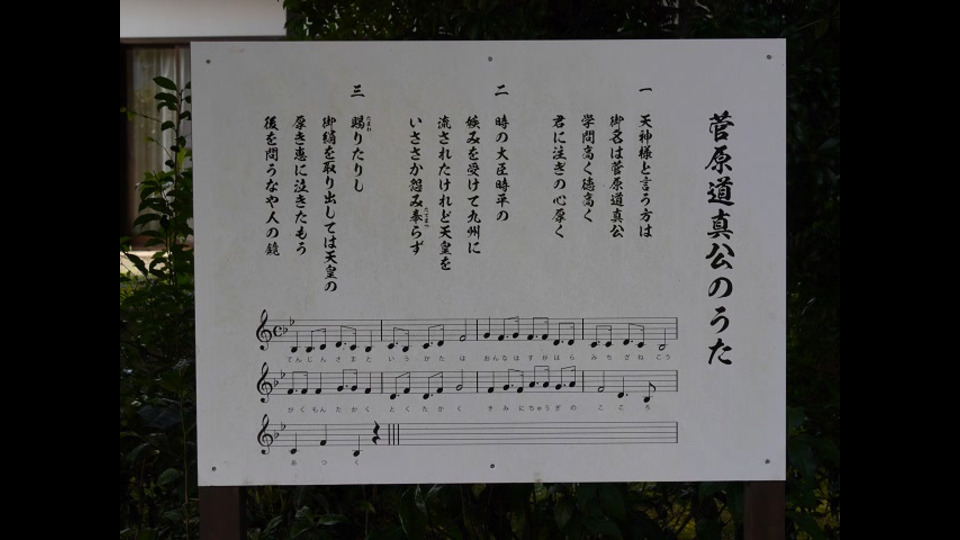 菅原道真公のうた
一
天神様と言う方は
御名は菅原道真公
学問高く徳高く
君に注ぎの心厚く
二
時の大臣時平の
嫉みを受けて九州に
流されたけれど天皇を
いささか怨み奉らず
たてまつ
三
賜りたりし
たまわ
御絹を取り出しては天皇の
厚き恵に泣きたもう
後を問うなや人の鏡
てんじんさまと いうかたは おんなはすがはら みちざねこう
がくもんたかく とくたかく きみにちゅうぎの こころ
あつく